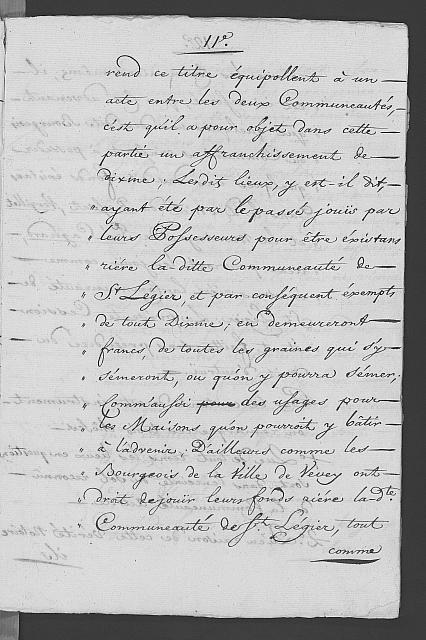 11e.
rend ce titre équipollent à un
acte entre les deux Communeautés,
c'est qu'il a pour objet dans cette
partie un affranchissement de
Dixme; Lesdit lieux, y est-il dit,
" ayant été par le passé jouïs par
" leurs Possesseurs pour être éxistans
" riére la ditte Communeauté de
" St. Légier, et par conséquent éxempts
" de tout Dixme; en demeureront
" francs, de toutes les graines qui s'y
" sémeront, ou qu'on y pourra sémer;
" comm'aussi pour des usages pour
" les Maisons qu'on pourroit y bâtir
" à l'advenir; D'ailleurs comme les
" Bourgeois de la Ville de Vevey ont
" droit de jouir leurs fonds riére la de.
" Communeauté de St. Légier, tout
comme